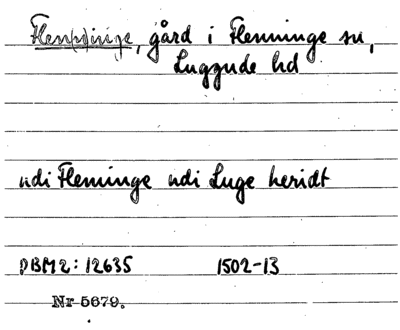 Flen(n)inge, gård i Flenninge sn,
Luggude hd
udi Fleminge udi Luge heridt
DBM 2: 12635 1502-13
Nr 5679.